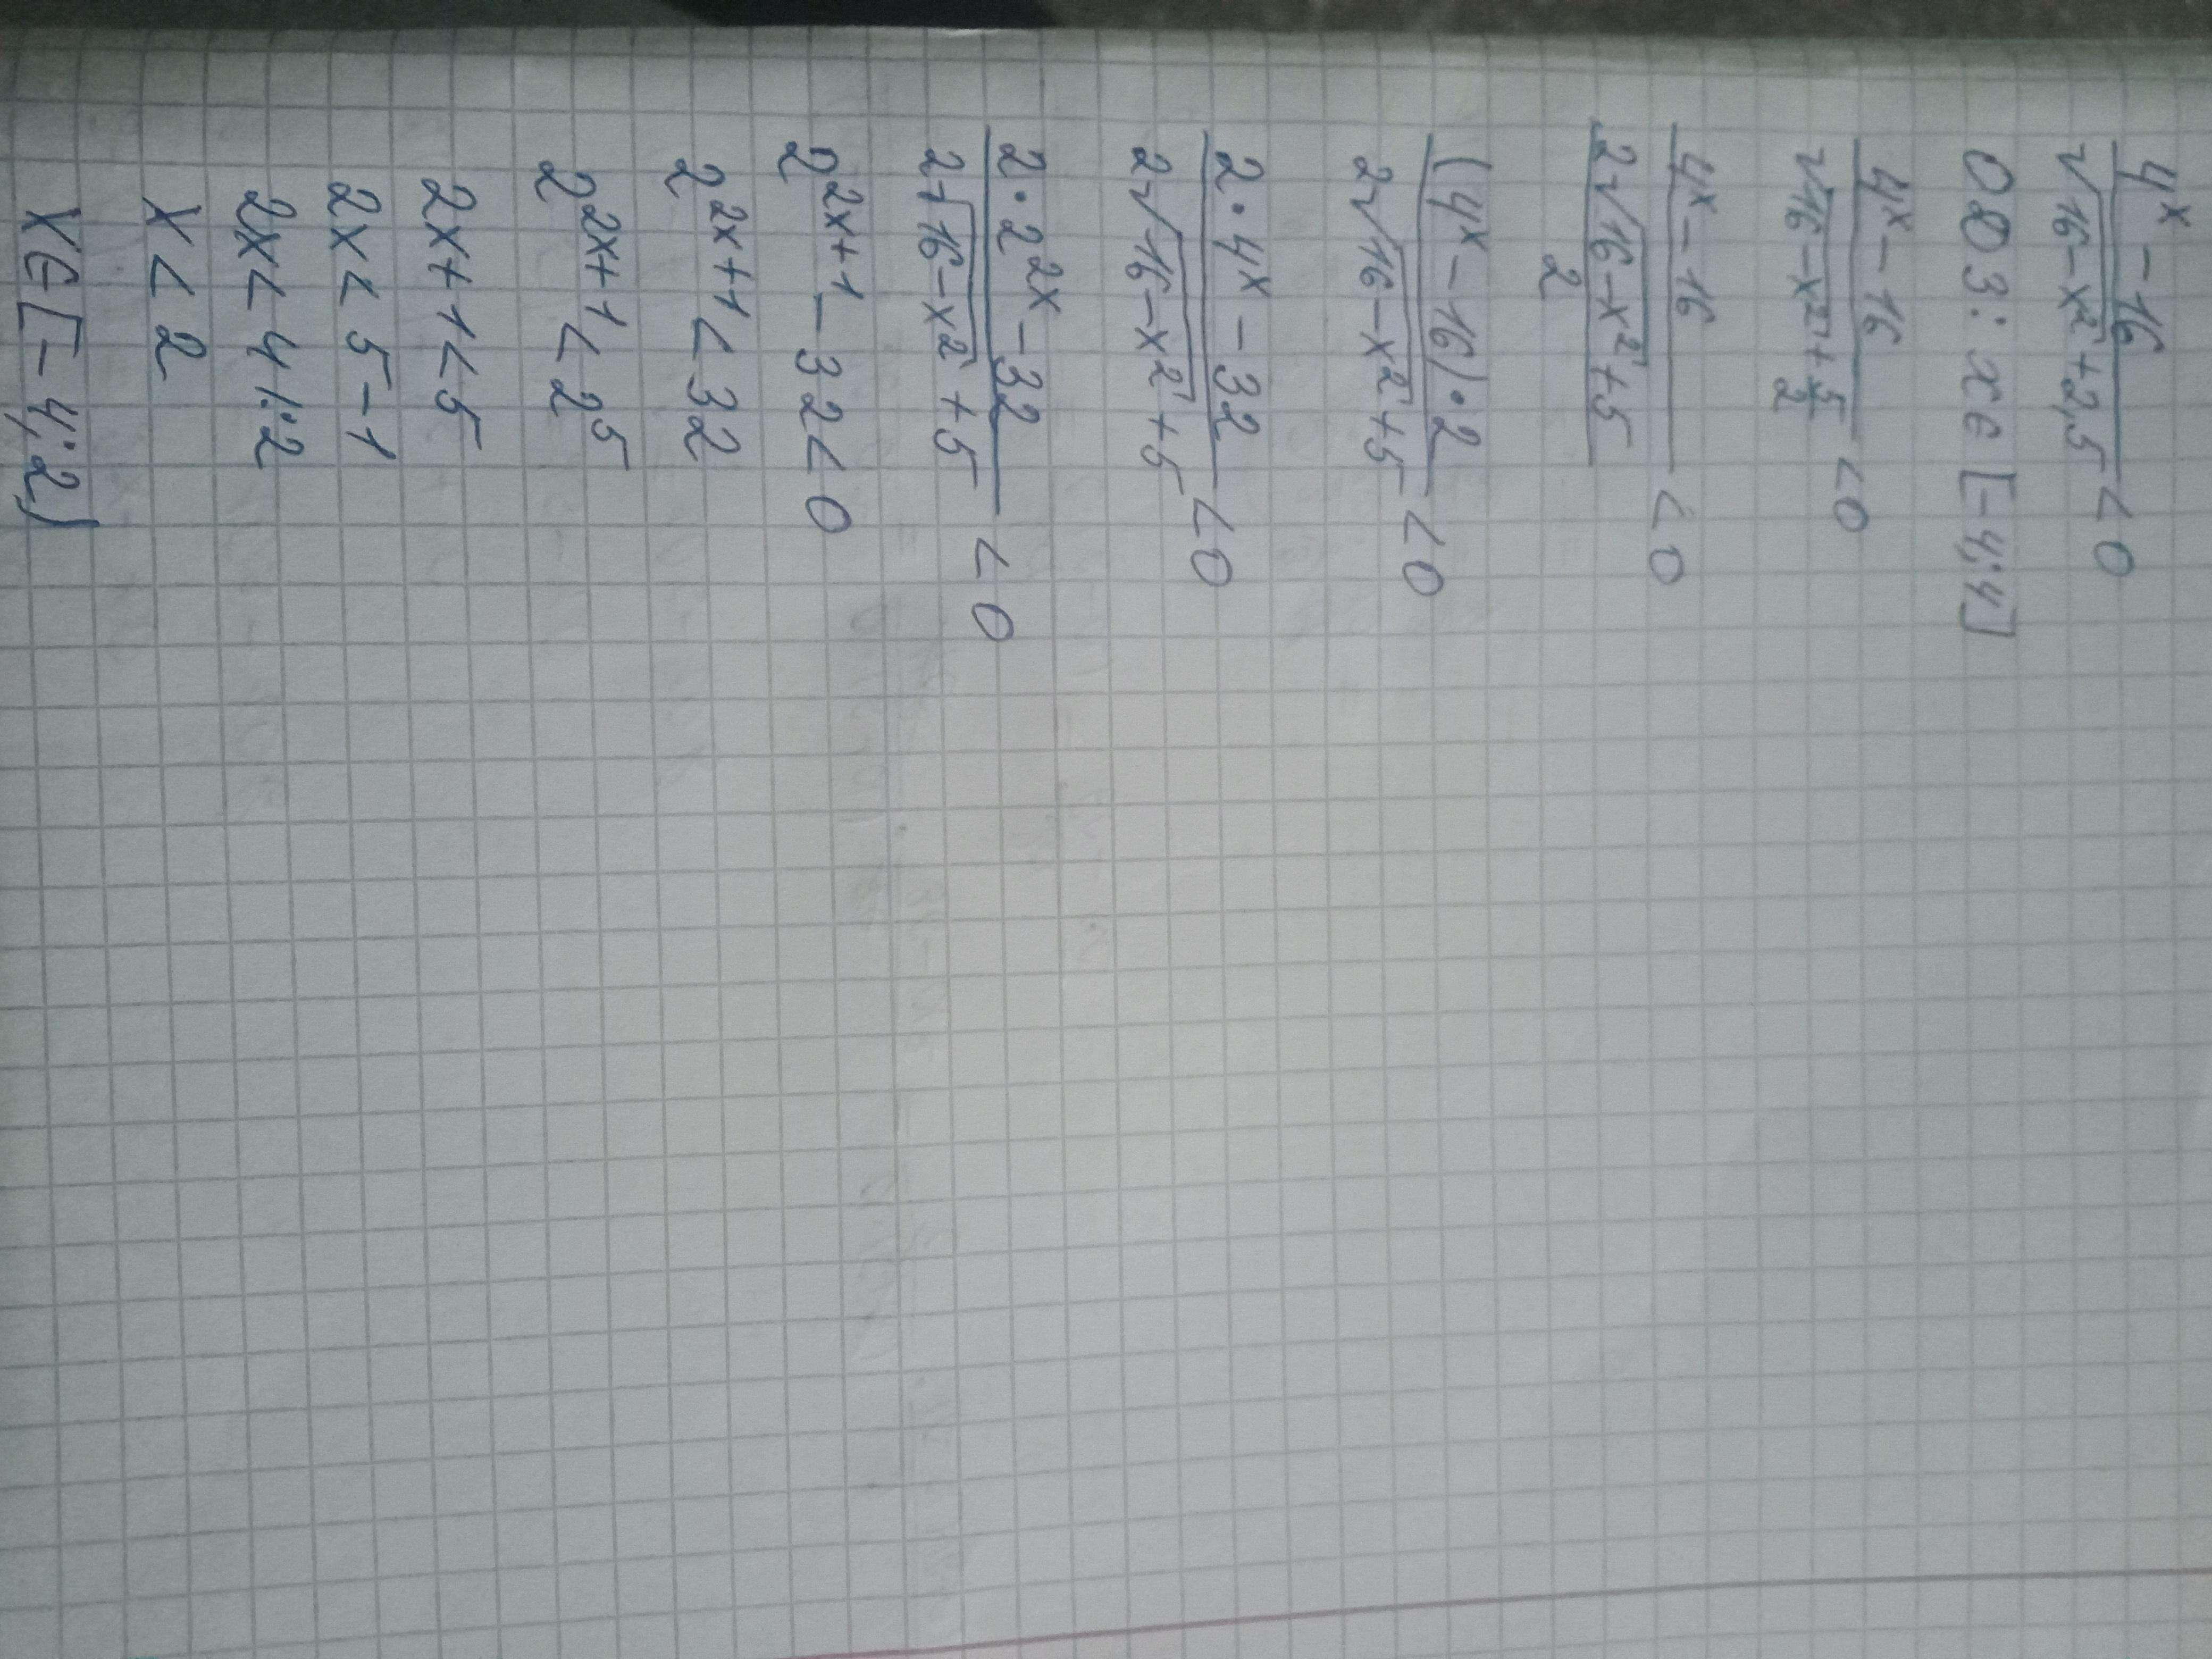 4^x - 16
√16-x² + 2,5 < 0
ОВЗ: x ∈ [-4; 4]
4^x - 16
√16-x² + 5/2 < 0
4^x - 16
2√16-x² + 5 < 0
2
(4^x - 16) · 2
2√16-x² + 5 < 0
2 · 4^x - 32
2√16-x² + 5 < 0
2 · 2^2x - 32
2√16-x² + 5 < 0
2^2x+1 - 32 < 0
2^2x+1 < 32
2^2x+1 < 2^5
2x+1 < 5
2x < 5-1
2x < 4 |:2
x < 2
x ∈ [-4; 2)